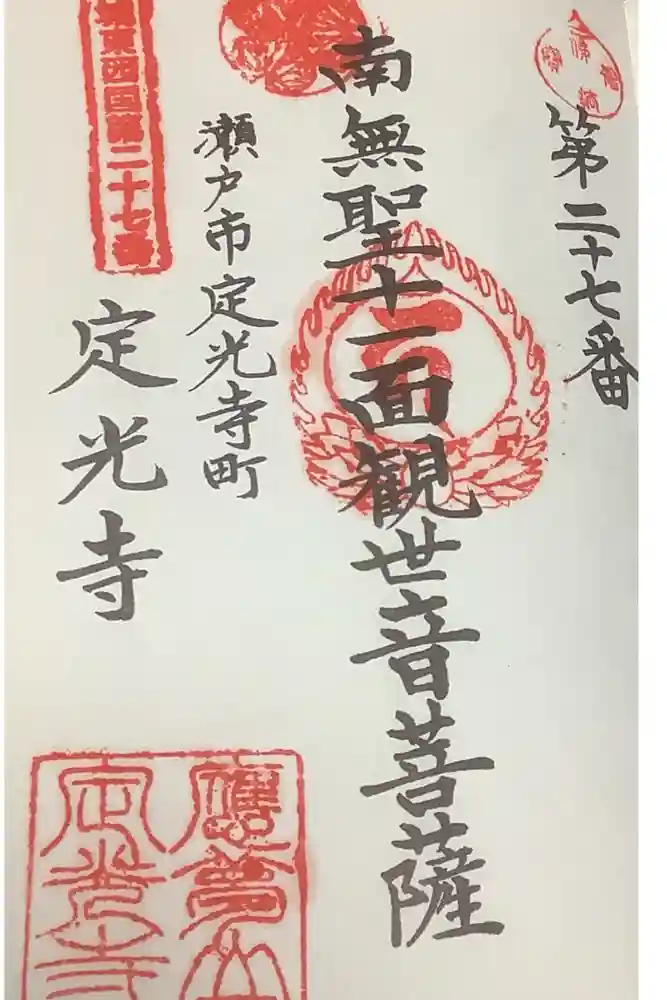 第二十七番
南無聖十一面観世音菩薩
瀬戸市定光寺町
東西国第二十七番
定光寺
應夢山
定光寺